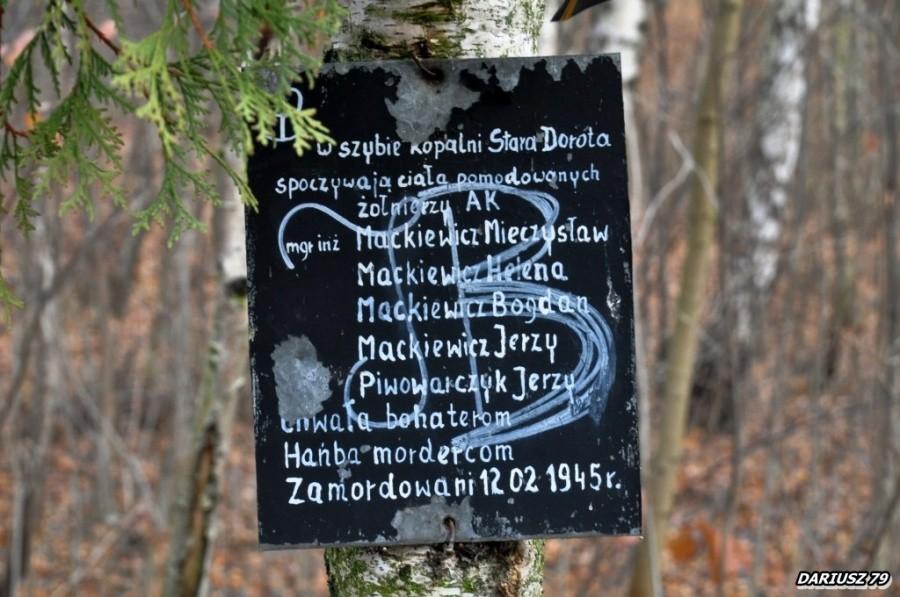 w szybie kopalni Stara Dorota
spoczywają ciała pomodowanych
żołnierzy AK
mgr inż Mackiewicz Mieczysław
Mackiewicz Helena
Mackiewicz Bogdan
Mackiewicz Jerzy
Piwowarczyk Jerzy
Chwała bohaterom
Hańba mordercom
Zamordowani 12 02 1945r.
DARIUSZ 79